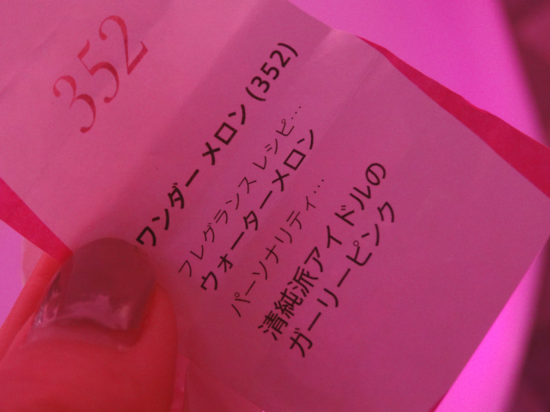 352
ワンダー メロン (352)
フレグランス レシピ…
ウォーターメロン
パーソナリティ…
清純派アイドルの
ガーリーピンク